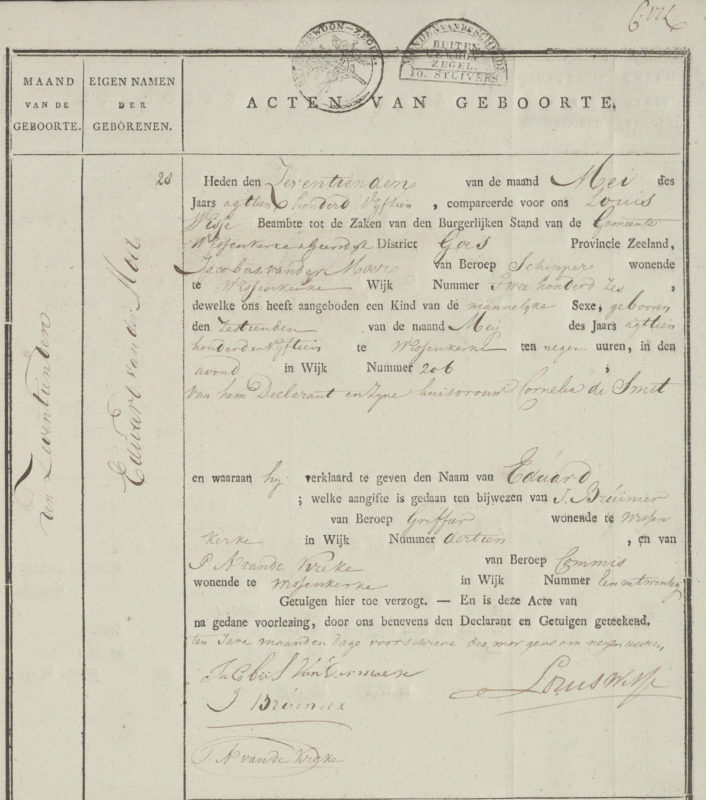 BUITEN
ZEGEL.
10. STUIVERS
MAAND
VAN DE
GEBOORTE.
EIGEN NAMEN
DER
GEBORENEN.
ACTEN VAN GEBOORTE.
den Zeventienden
Eduard van der Moer
28
Heden den Zeventienden van de maand Mei des
Jaars agttien honderd vyftien, compareerde voor ons Louis
Wesse Beambte tot de Zaken van den Burgerlijken Stand van de Gemeente
Wissenkerke & Geersdyk District Goes Provincie Zeeland,
Jacobus van der Moere van Beroep Schipper wonende
te Wissenkerke Wijk Nummer Twee honderd zes,
dewelke ons heeft aangeboden een Kind van de mannelyke Sexe, geboren
den Zestienden van de maand Meij des Jaars agttien
honderd en vyftien te Wissenkerke ten negen uuren, in den
avond in Wijk Nummer 206,
van hem Declarant en zyne huisvrouw Cornelia de Smit
en waaraan hy verklaard te geven den Naam van Eduard
; welke aangifte is gedaan ten bijwezen van J. Breúinier
van Beroep Griffier wonende te Wissen
kerke in Wijk Nummer dertien, en van
P A van de Vreke van Beroep Commis
wonende te Wissenkerke in Wijk Nummer een en twintig
Getuigen hier toe verzogt. — En is deze Acte van
na gedane voorlezing, door ons benevens den Declarant en Getuigen geteekend.
ten Jare maand en dage voorschreve des morgens om negen uuren,
Jacobus Van der moere
Louis Wesse
J Breúinier
P A van de Vreke